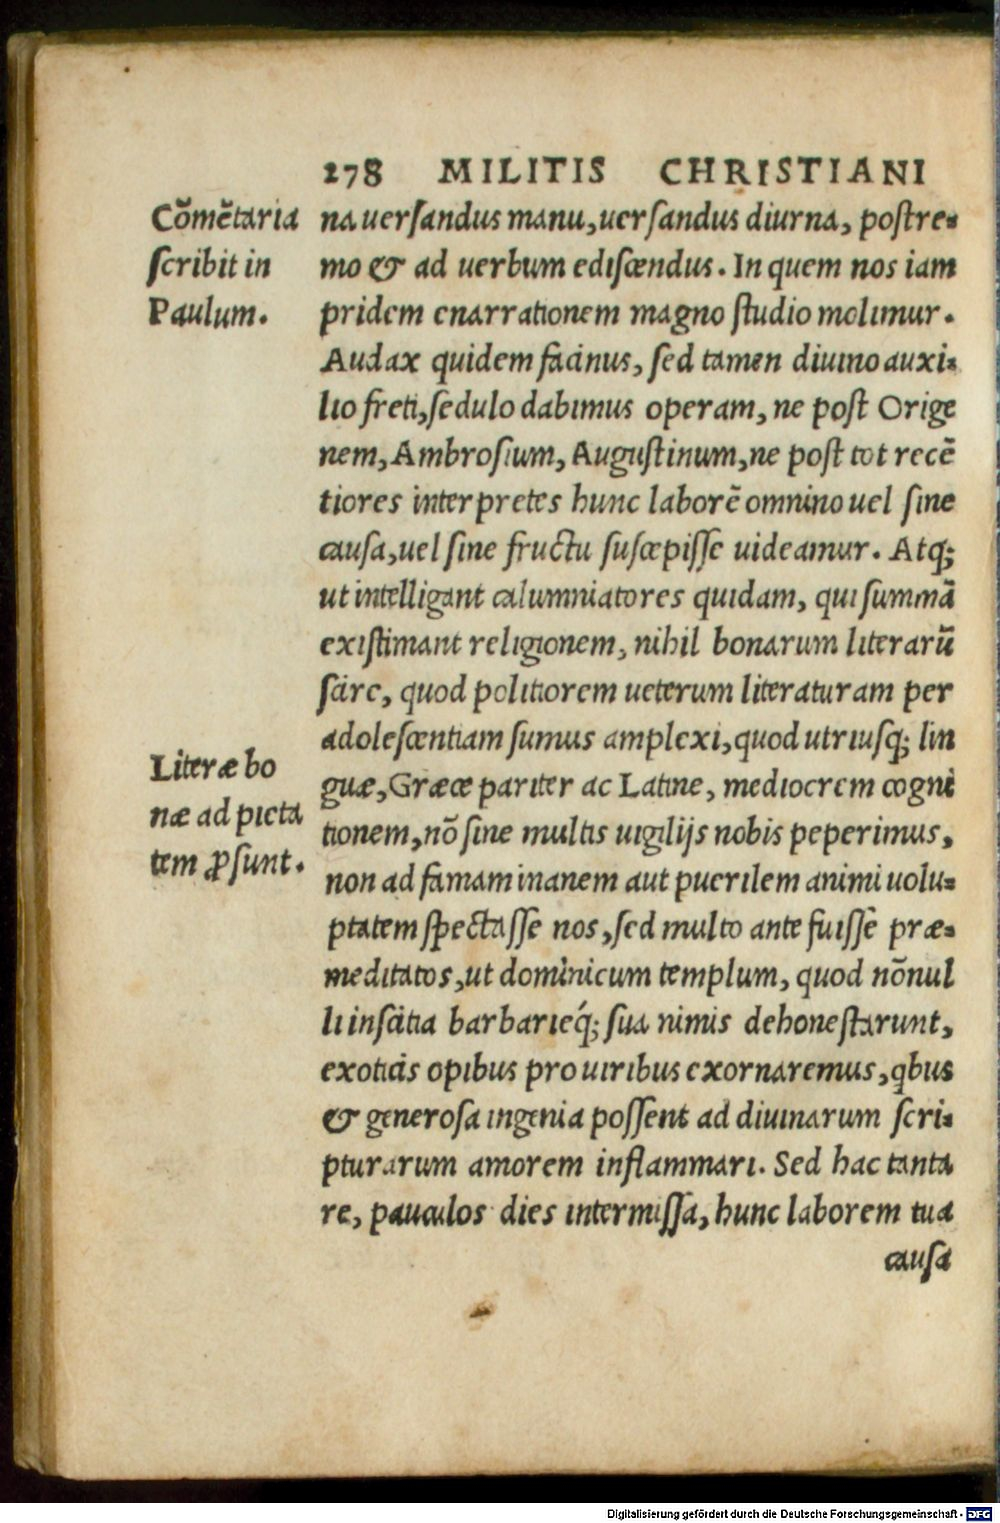 278 MILITIS CHRISTIANI
Cõmẽtaria
scribit in
Paulum.
na uersandus manu, uersandus diurna, postre-
mo & ad uerbum ediscendus. In quem nos iam
pridem enarrationem magno studio molimur.
Audax quidem facinus, sed tamen diuino auxi-
lio freti, sedulo dabimus operam, ne post Orige
nem, Ambrosium, Augustinum, ne post tot recẽ
tiores interpretes hunc laborẽ omnino uel sine
causa, uel sine fructu suscepisse uideamur. Atq;
ut intelligant calumniatores quidam, qui summã
existimant religionem, nihil bonarum literarũ
scire, quod politiorem ueterum literaturam per
adolescentiam sumus amplexi, quod utriusq; lin
guæ, Græce pariter ac Latine, mediocrem cogni
tionem, nõ sine multis uigilijs nobis peperimus,
non ad famam inanem aut puerilem animi uolu-
ptatem spectasse nos, sed multo ante fuisse præ-
meditatos, ut dominicum templum, quod nõnul
li inscitia barbarieq́; sua nimis dehonestarunt,
exoticis opibus pro uiribus exornaremus, qbus
& generosa ingenia possent ad diuinarum scri-
pturarum amorem inflammari. Sed hac tanta
re, pauculos dies intermissa, hunc laborem tua
causa
Literæ bo
næ ad pieta
tem ꝓsunt.
Digitalisierung gefördert durch die Deutsche Forschungsgemeinschaft - DFG